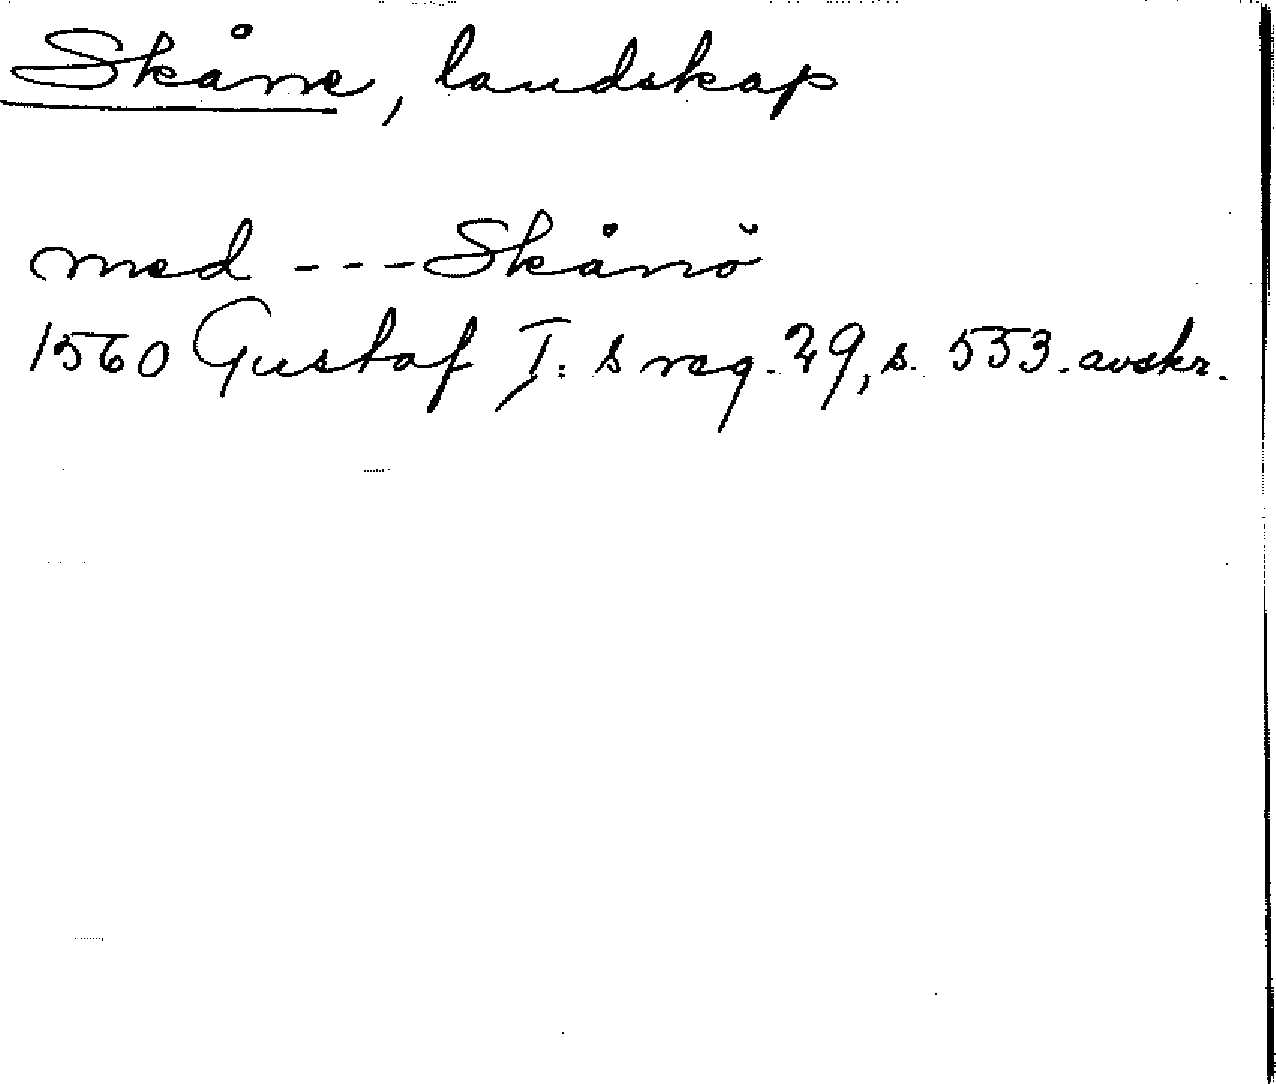 Skåne, landskap
med --- Skånö
1560 Gustaf I:s reg. 29, s. 553. avskr.